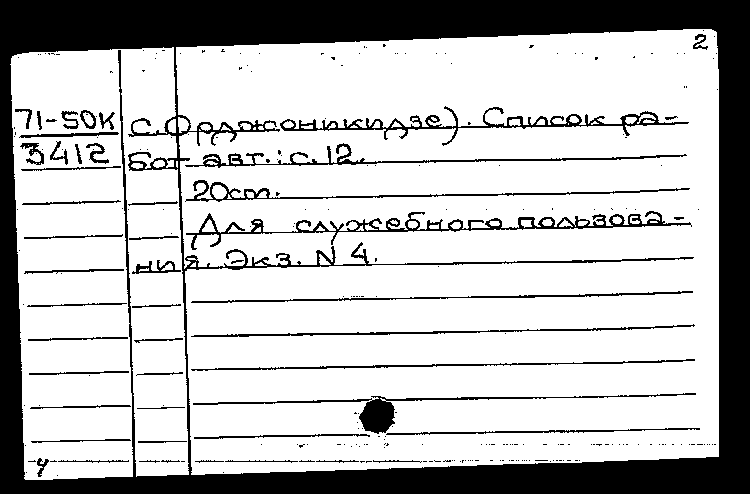 2
71-50К С. Орджоникидзе). Список ра-
3412 бот авт.: с. 12.
20см.
Для служебного пользова-
ния. Экз. N 4.
4